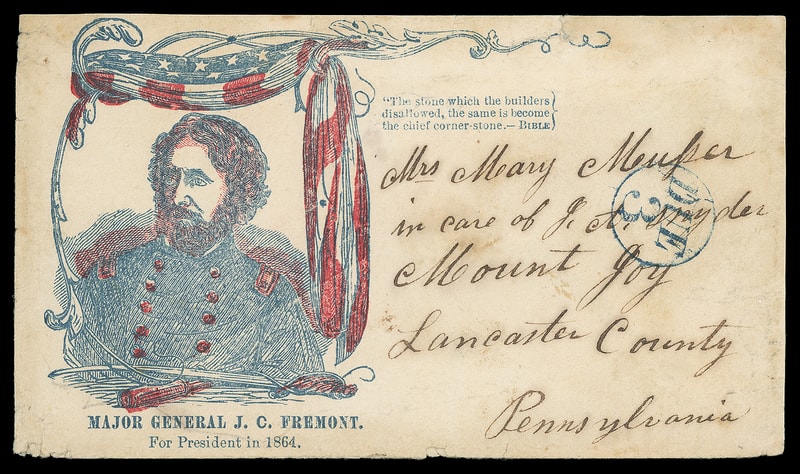 "The stone which the builders
disallowed, the same is become
the chief corner-stone.— BIBLE
Mrs Mary Musser
in care of J. A. Snyder
Mount Joy
Lancaster County
Pennsylvania
DUE
3
MAJOR GENERAL J. C. FREMONT.
For President in 1864.